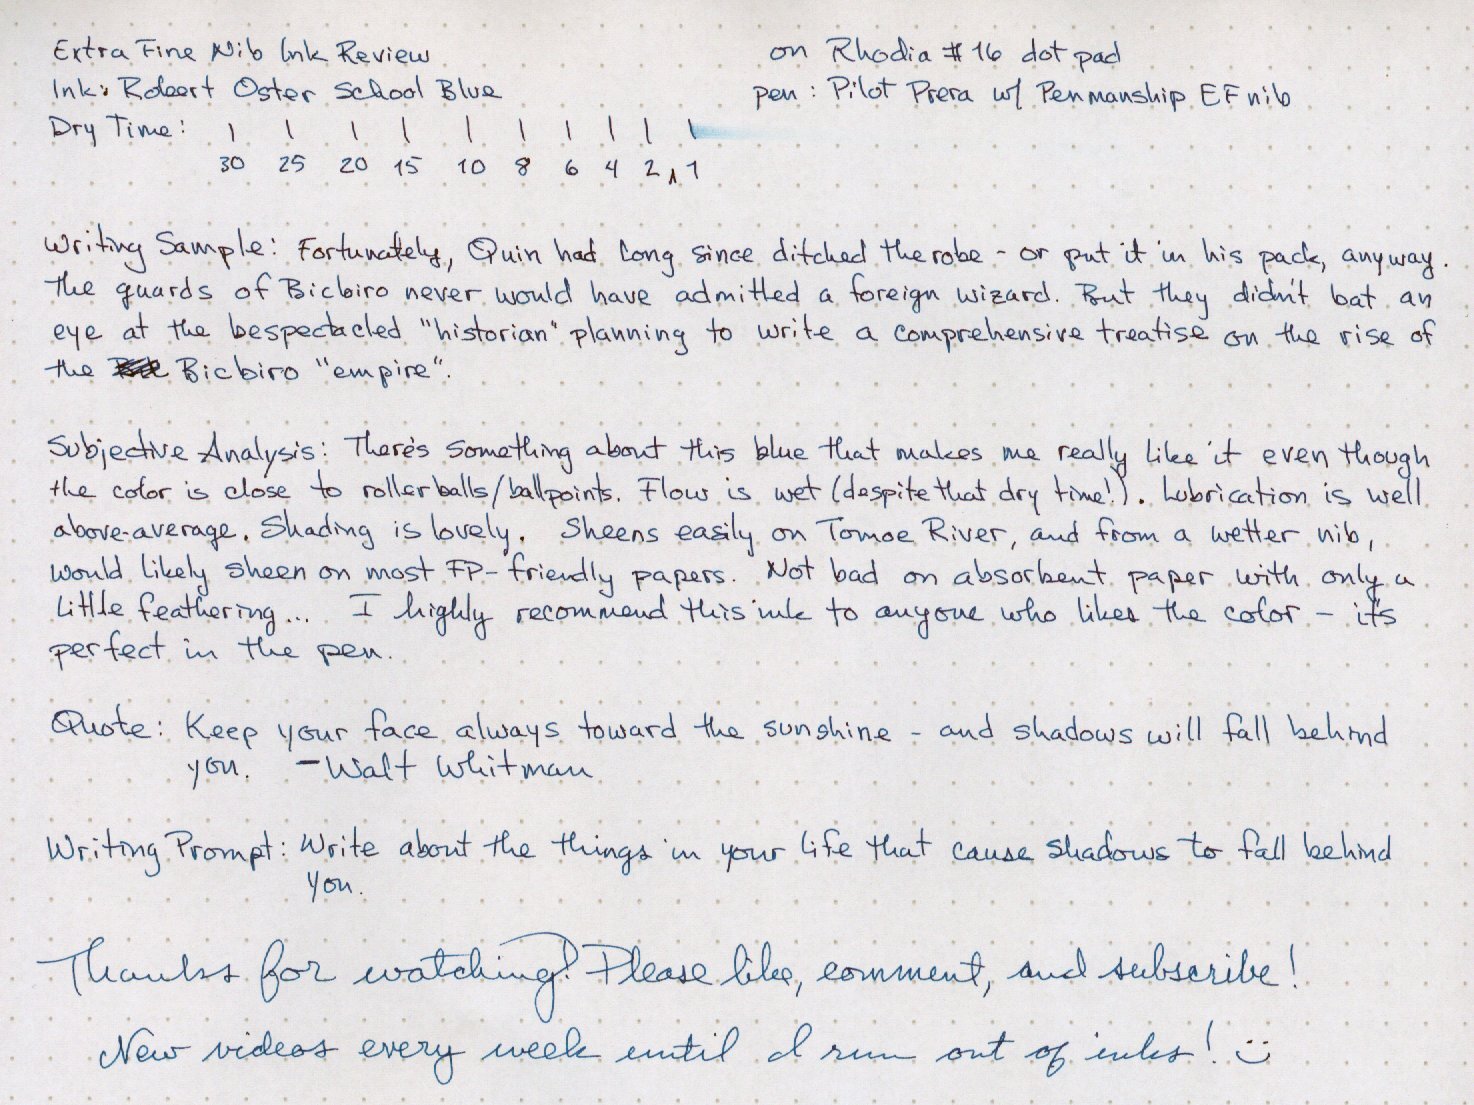 Extra Fine Nib Ink Review on Rhodia #16 dot pad
Ink: Robert Oster School Blue pen: Pilot Prera w/ Penmanship EF nib
Dry Time:
30 25 20 15 10 8 6 4 2 1
Writing Sample: Fortunately, Quin had long since ditched the robe - or put it in his pack, anyway.
The guards of Bicbiro never would have admitted a foreign wizard. But they didn't bat an
eye at the bespectacled "historian" planning to write a comprehensive treatise on the rise of
the Bicbiro "empire".
Subjective Analysis: There's something about this blue that makes me really like it even though
the color is close to rollerballs/ballpoints. Flow is wet (despite that dry time!). Lubrication is well
above-average. Shading is lovely. Sheens easily on Tomoe River, and from a wetter nib,
would likely sheen on most FP-friendly papers. Not bad on absorbent paper with only a
little feathering... I highly recommend this ink to anyone who likes the color - it's
perfect in the pen.
Quote: Keep your face always toward the sunshine - and shadows will fall behind
you. - Walt Whitman
Writing Prompt: Write about the things in your life that cause shadows to fall behind
you.
Thanks for watching! Please like, comment, and subscribe!
New videos every week until I run out of inks! :)